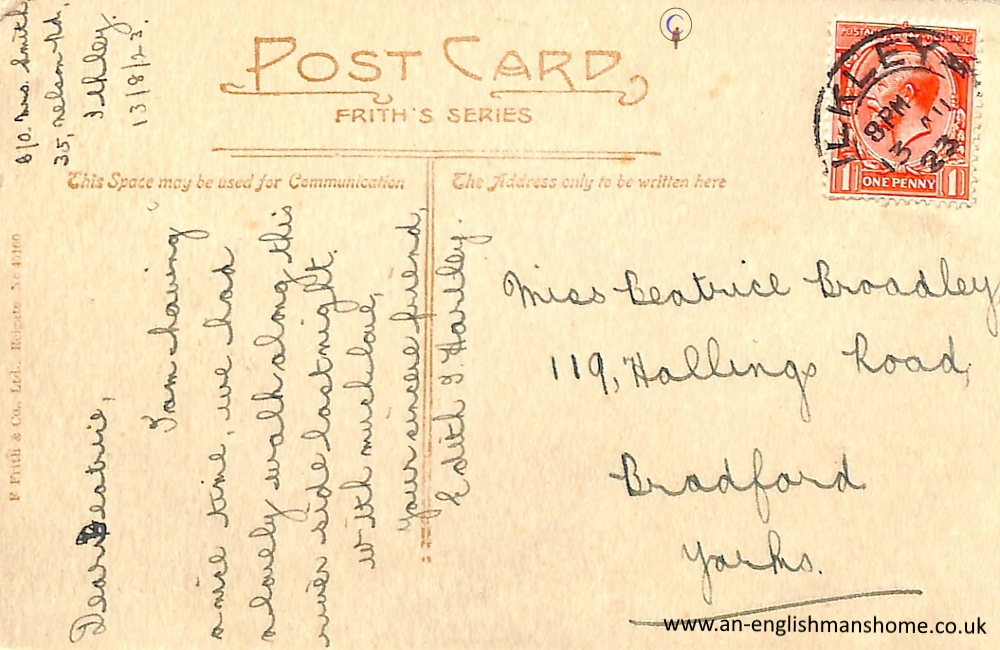 POST CARD
FRITH'S SERIES
This Space may be used for Communication
The Address only to be written here
F Frith & Co., Ltd., Reigate No
c/o. Mrs. Smith,
35, nelson Rd,
Ilkley.
13/8/23.
Dear Beatrice,
I am having
a nice time, we had
a lovely walk along this
river side last night.
with much love,
your sincere friend,
Edith J. Hartley.
Miss Beatrice Broadley
119, Hallings Road,
Bradford
Yorks.
POSTAGE
ILKLEY
8 PM
13 AU
23
1 ONE PENNY 1
www.an-englishmanshome.co.uk